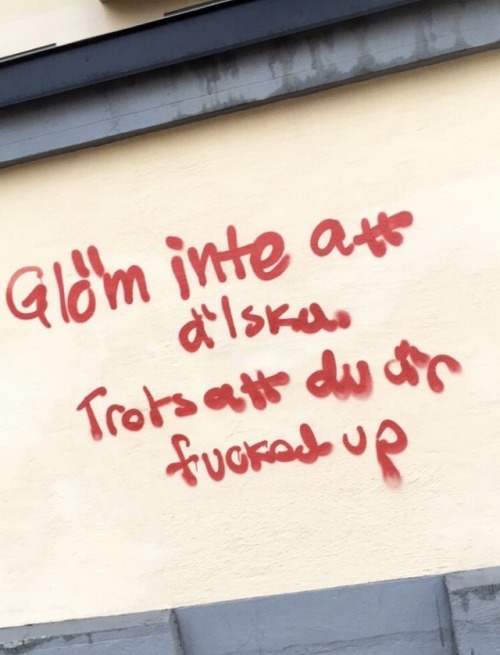 Glöm inte att
älska.
Trots att du är
fucked up